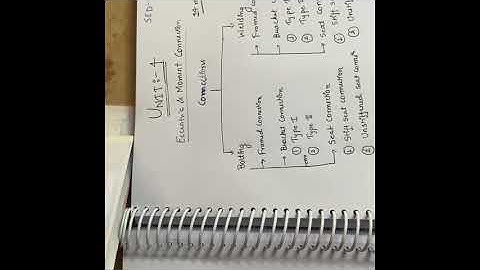 SED
UNIT:- 1
Eccentric & Moment Connection
Connections
Bolting
→ Framed Connection
→ Bracket Connection
① Type I
② Type II
→ Seat Connection
① Stiff seat connection
② Unstiffened seat connec
Welding
Framed conn
Bracket
① Type
② Type
Seat conn
① Stiff sea
② Unstif